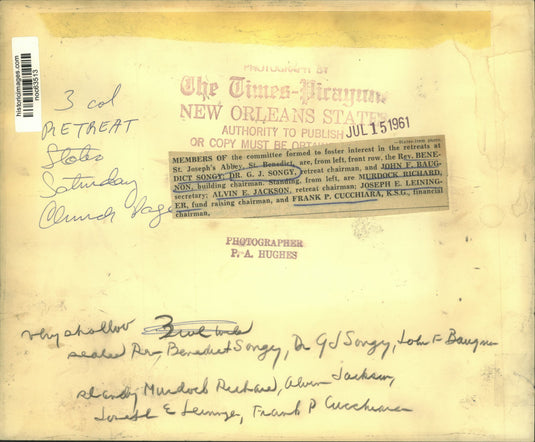 historicimages.com
noo63513
3 col
RETREAT
States
Saturday
Church Page
PHOTOGRAPH BY
The Times-Picayune
NEW ORLEANS STATES
AUTHORITY TO PUBLISH
OR COPY MUST BE
JUL 15 1961
—States photo
MEMBERS of the committee formed to foster interest in the retreats at
St. Joseph's Abbey, St. Benedict, are, from left, front row, the Rev. BENE-
DICT SONGY; DR. G. J. SONGY, retreat chairman, and JOHN F. BAUG-
NON, building chairman. Standing, from left, are MURDOCK RICHARD,
secretary; ALVIN E. JACKSON, retreat chairman; JOSEPH E. LEINING-
ER, fund raising chairman, and FRANK P. CUCCHIARA, K.S.G., financial
chairman.
PHOTOGRAPHER
P. A. HUGHES
very shallow 3 col
seated Rev Benedict Songy, Dr GJ Songy, John F Baugnon
standing Murdock Richard, Alvin Jackson,
Joseph E Leininger, Frank P Cucchiara